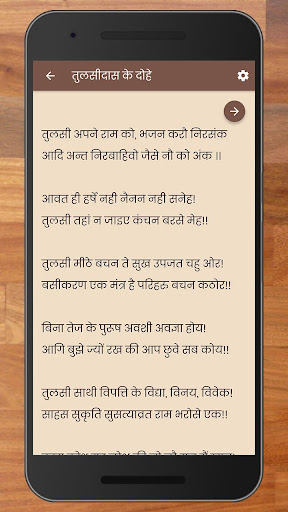 तुलसीदास के दोहे
तुलसी अपने राम को, भजन करो निरसंक
आदि अन्त निरबाहिवो जैसे नौ को अंक ।।
आवत ही हर्षे नही नैनन नही सनेह!
तुलसी तहां न जाइए कंचन बरसे मेह!!
तुलसी मीठे बचन ते सुख उपजत चहु ओर!
बसीकरण एक मंत्र है परिहरु बचन कठोर!!
बिना तेज के पुरूष अवशी अवज्ञा होय!
आगि बुझे ज्यों रख की आप छुवे सब कोय!!
तुलसी साथी विपत्ति के विद्या, विनय, विवेक!
साहस सुकृति सुसत्याव्रत राम भरोसे एक!!